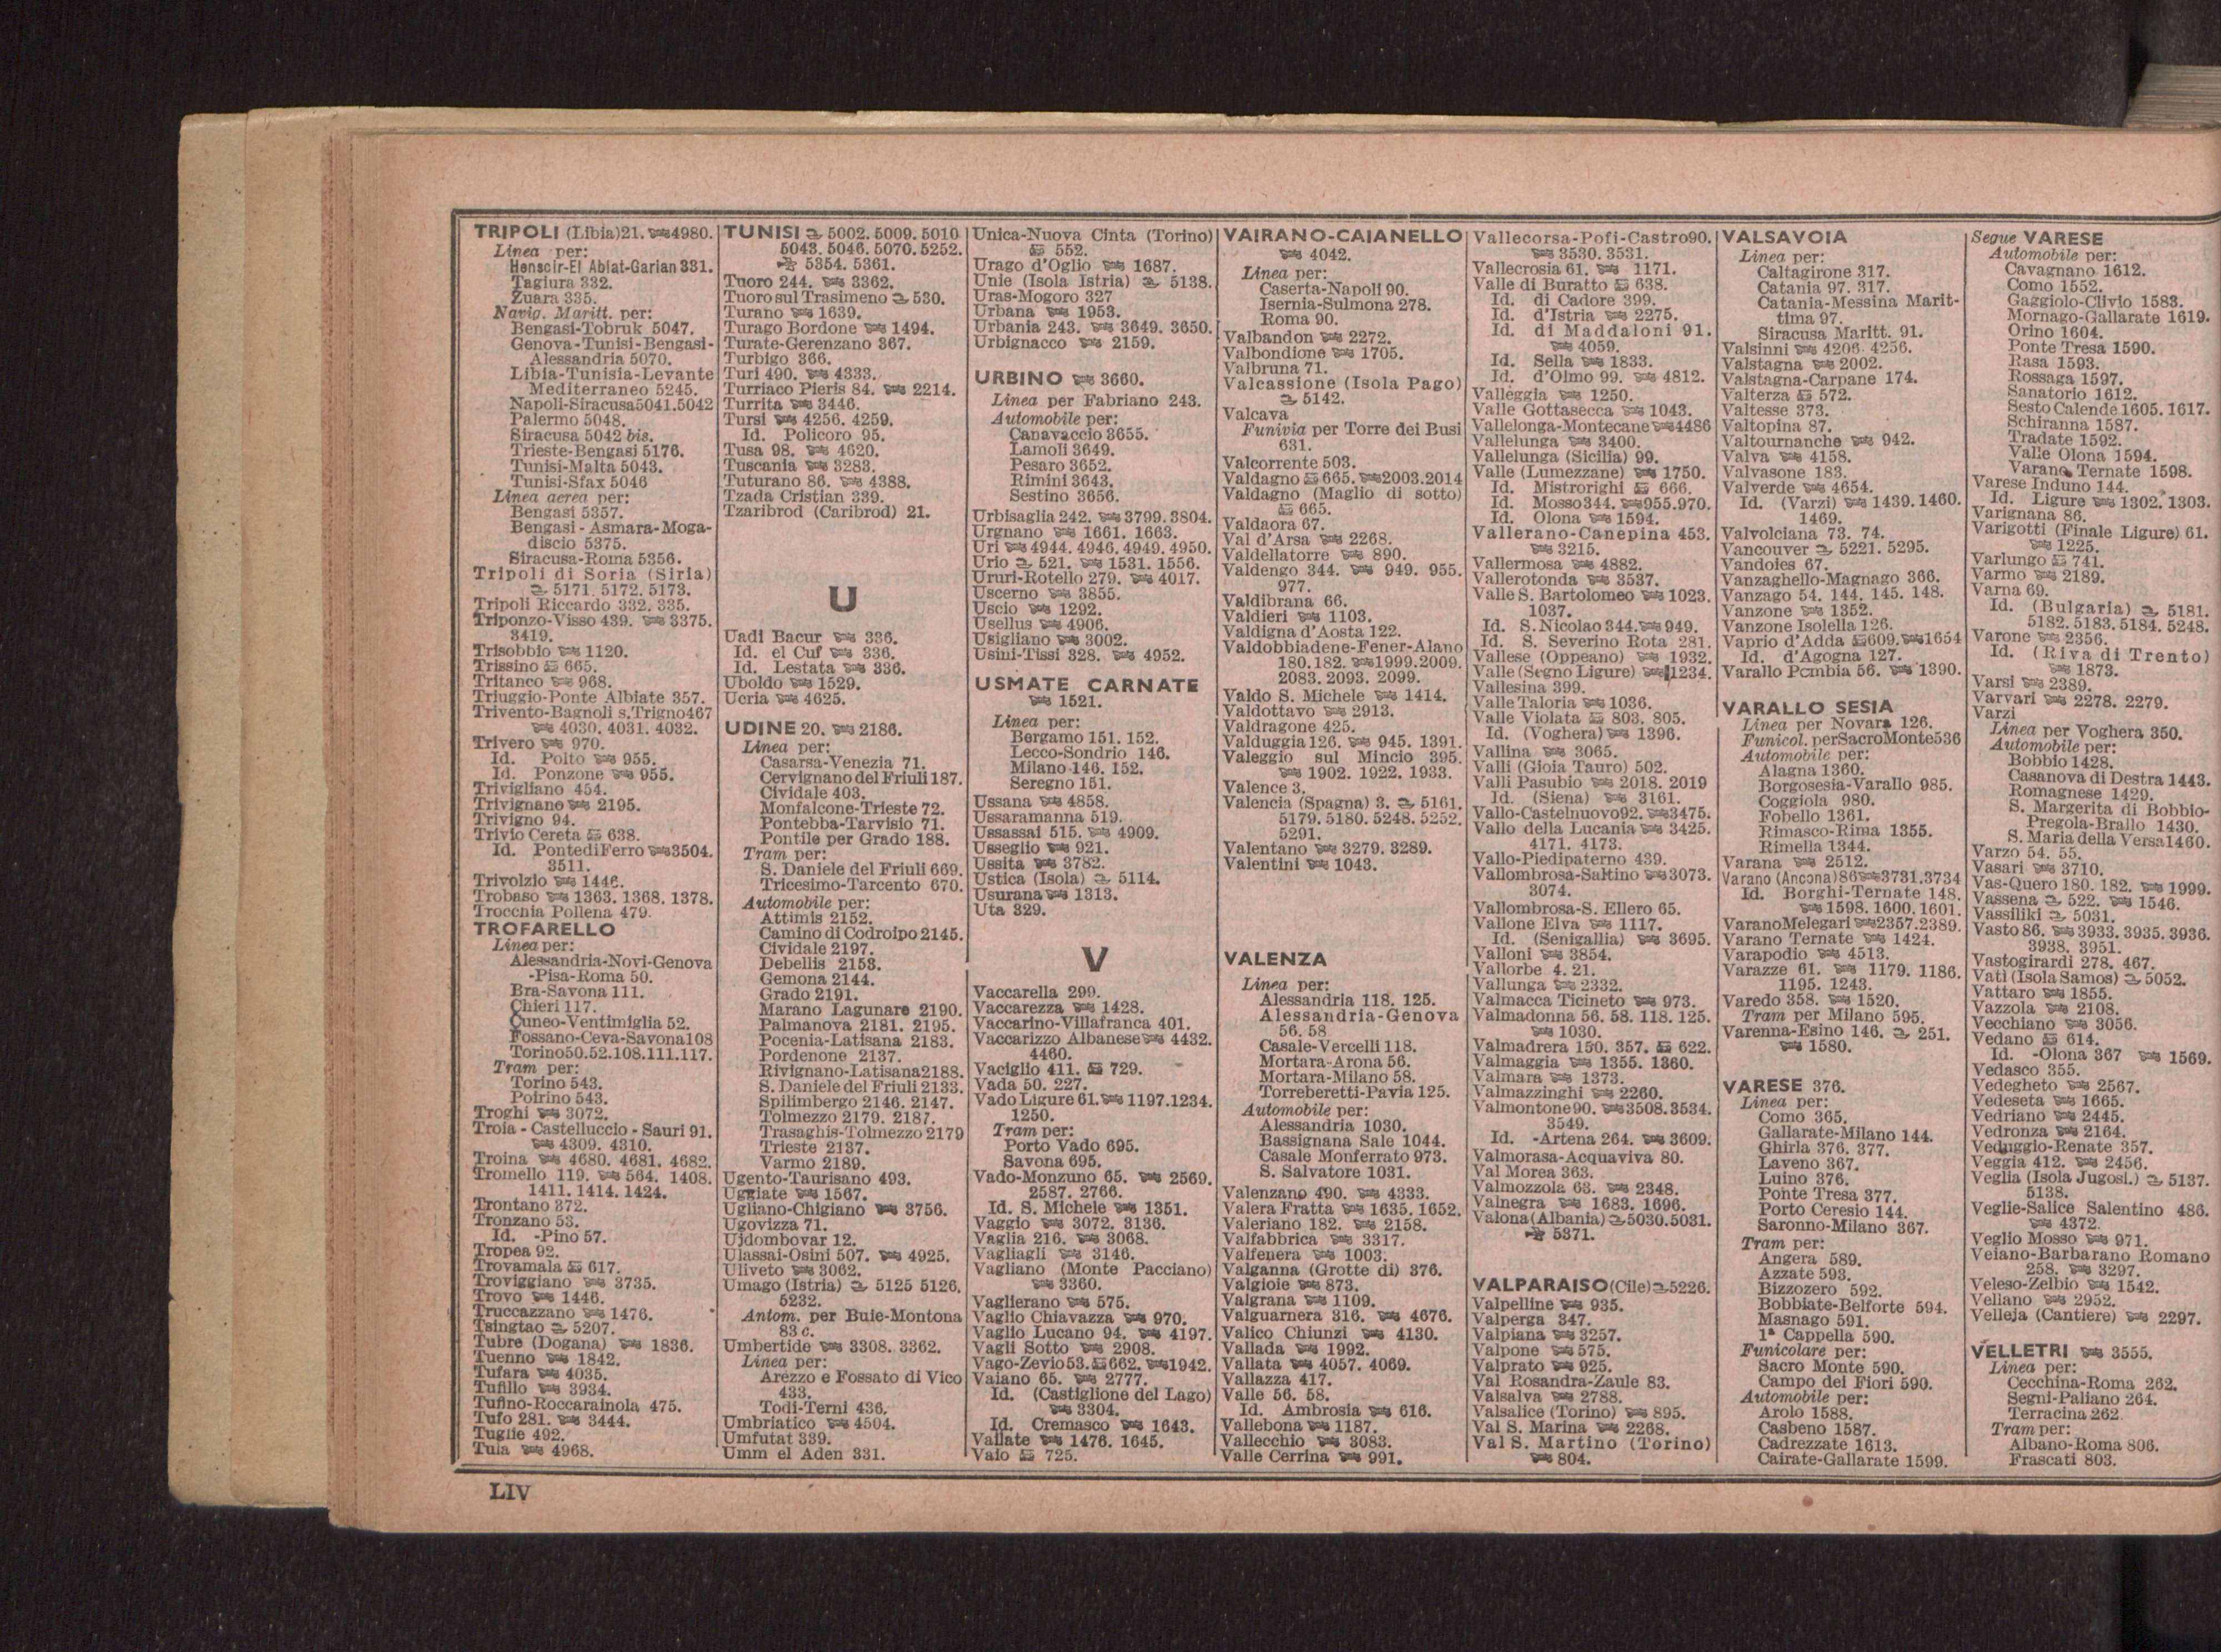 TRIPOLI (Libia) 21. 4980.
Linea per:
Henscir-El Abiat-Garian 331.
Tagiura 332.
Zuara 335.
Navig. Maritt. per:
Bengasi-Tobruk 5047.
Genova-Tunisi-Bengasi-
Alessandria 5070.
Libia-Tunisia-Levante
Mediterraneo 5245.
Napoli-Siracusa 5041. 5042
Palermo 5048.
Siracusa 5042 bis.
Trieste-Bengasi 5176.
Tunisi-Malta 5043.
Tunisi-Sfax 5046
Linea aerea per:
Bengasi 5357.
Bengasi - Asmara-Moga-
discio 5375.
Siracusa-Roma 5356.
Tripoli di Soria (Siria)
5171. 5172. 5173.
Tripoli Riccardo 332. 335.
Triponzo-Visso 439. 3375.
3419.
Trisobbio 1120.
Trissino 665.
Tritanco 968.
Triuggio-Ponte Albiate 357.
Trivento-Bagnoli s. Trigno 467
4030. 4031. 4032.
Trivero 970.
Id. Polto 955.
Id. Ponzone 955.
Trivigliano 454.
Trivignano 2195.
Trivigno 94.
Trivio Cereta 638.
Id. Ponte di Ferro 3504.
3511.
Trivolzio 1446.
Trobaso 1363. 1368. 1378.
Trocchia Pollena 479.
TROFARELLO
Linea per:
Alessandria-Novi-Genova
-Pisa-Roma 50.
Bra-Savona 111.
Chieri 117.
Cuneo-Ventimiglia 52.
Fossano-Ceva-Savona 108
Torino 50. 52. 108. 111. 117.
Tram per:
Torino 543.
Poirino 543.
Troghi 3072.
Troia - Castelluccio - Sauri 91.
4309. 4310.
Troina 4680. 4681. 4682.
Tromello 119. 564. 1408.
1411. 1414. 1424.
Trontano 372.
Tronzano 53.
Id. -Pino 57.
Tropea 92.
Trovamala 617.
Troviggiano 3735.
Trovo 1446.
Truccazzano 1476.
Tsingtao 5207.
Tubre (Dogana) 1836.
Tuenno 1842.
Tufara 4035.
Tufillo 3934.
Tufino-Roccarainola 475.
Tufo 281. 3444.
Tuglie 492.
Tula 4968.
TUNISI 5002. 5009. 5010
5043. 5046. 5070. 5252.
5354. 5361.
Tuoro 244. 3362.
Tuoro sul Trasimeno 530.
Turano 1639.
Turago Bordone 1494.
Turate-Gerenzano 367.
Turbigo 366.
Turi 490. 4333.
Turriaco Pieris 84. 2214.
Turrita 3446.
Tursi 4256. 4259.
Id. Policoro 95.
Tusa 98. 4620.
Tuscania 3283.
Tuturano 86. 4388.
Tzada Cristian 339.
Tzaribrod (Caribrod) 21.
U
Uadi Bacur 336.
Id. el Cuf 336.
Id. Lestata 336.
Uboldo 1529.
Ucria 4625.
UDINE 20. 2186.
Linea per:
Casarsa-Venezia 71.
Cervignano del Friuli 187.
Cividale 403.
Monfalcone-Trieste 72.
Pontebba-Tarvisio 71.
Pontile per Grado 188.
Tram per:
S. Daniele del Friuli 669.
Tricesimo-Tarcento 670.
Automobile per:
Attimis 2152.
Camino di Codroipo 2145.
Cividale 2197.
Debellis 2153.
Gemona 2144.
Grado 2191.
Marano Lagunare 2190.
Palmanova 2181. 2195.
Pocenia-Latisana 2183.
Pordenone 2137.
Rivignano-Latisana 2188.
S. Daniele del Friuli 2133.
Spilimbergo 2146. 2147.
Tolmezzo 2179. 2187.
Trasaghis-Tolmezzo 2179
Trieste 2187.
Varmo 2189.
Ugento-Taurisano 493.
Uggiate 1567.
Ugliano-Chigiano 3756.
Ugovizza 71.
Ujdombovar 12.
Ulassai-Osini 507. 4925.
Uliveto 3062.
Umago (Istria) 5125 5126.
5232.
Antom. per Buie-Montona
83 c.
Umbertide 3308. 3362.
Linea per:
Arezzo e Fossato di Vico
433.
Todi-Terni 436.
Umbriatico 4504.
Umfutat 339.
Umm el Aden 331.
Unica-Nuova Cinta (Torino)
552.
Urago d'Oglio 1687.
Unie (Isola Istria) 5138.
Uras-Mogoro 327
Urbana 1953.
Urbania 243. 3649. 3650.
Urbignacco 2159.
URBINO 3660.
Linea per Fabriano 243.
Automobile per:
Canavaccio 3655.
Lamoli 3649.
Pesaro 3652.
Rimini 3643.
Sestino 3656.
Urbisaglia 242. 3799. 3804.
Urgnano 1661. 1663.
Uri 4944. 4946. 4949. 4950.
Urio 521. 1531. 1556.
Ururi-Rotello 279. 4017.
Uscerno 3855.
Uscio 1292.
Usellus 4906.
Usigliano 3002.
Usini-Tissi 328. 4952.
USMATE CARNATE
1521.
Linea per:
Bergamo 151. 152.
Lecco-Sondrio 146.
Milano 146. 152.
Seregno 151.
Ussana 4858.
Ussaramanna 519.
Ussassai 515. 4909.
Usseglio 921.
Ussita 3782.
Ustica (Isola) 5114.
Usurana 1313.
Uta 329.
V
Vaccarella 299.
Vaccarezza 1428.
Vaccarino-Villafranca 401.
Vaccarizzo Albanese 4432.
4460.
Vaciglio 411. 729.
Vada 50. 227.
Vado Ligure 61. 1197. 1234.
1250.
Tram per:
Porto Vado 695.
Savona 695.
Vado-Monzuno 65. 2569.
2587. 2766.
Id. S. Michele 1351.
Vaggio 3072. 3136.
Vaglia 216. 3068.
Vagliagli 3146.
Vagliano (Monte Pacciano)
3360.
Vaglierano 575.
Vaglio Chiavazza 970.
Vaglio Lucano 94. 4197.
Vagli Sotto 2908.
Vago-Zevio 53. 662. 1942.
Vaiano 65. 2777.
Id. (Castiglione del Lago)
3304.
Id. Cremasco 1643.
Vailate 1476. 1645.
Vaio 725.
VAIRANO-CAIANELLO
4042.
Linea per:
Caserta-Napoli 90.
Isernia-Sulmona 278.
Roma 90.
Valbandon 2272.
Valbondione 1705.
Valbruna 71.
Valcassione (Isola Pago)
5142.
Valcava
Funivia per Torre dei Busi
631.
Valcorrente 503.
Valdagno 665. 2003. 2014
Valdagno (Maglio di sotto)
665.
Valdaora 67.
Val d'Arsa 2268.
Valdellatorre 890.
Valdengo 344. 949. 955.
977.
Valdibrana 66.
Valdieri 1103.
Valdigna d'Aosta 122.
Valdobbiadene-Fener-Alano
180. 182. 1999. 2009.
2083. 2093. 2099.
Valdo S. Michele 1414.
Valdottavo 2913.
Valdragone 425.
Valduggia 126. 945. 1391.
Valeggio sul Mincio 395.
1902. 1922. 1933.
Valence 3.
Valencia (Spagna) 3. 5161.
5179. 5180. 5248. 5252.
5291.
Valentano 3279. 3289.
Valentini 1043.
VALENZA
Linea per:
Alessandria 118. 125.
Alessandria-Genova
56. 58.
Casale-Vercelli 118.
Mortara-Arona 56.
Mortara-Milano 58.
Torreberetti-Pavia 125.
Automobile per:
Alessandria 1030.
Bassignana Sale 1044.
Casale Monferrato 973.
S. Salvatore 1031.
Valenzano 490. 4333.
Valera Fratta 1635. 1652.
Valeriano 182. 2158.
Valfabbrica 3317.
Valfenera 1003.
Valganna (Grotte di) 376.
Valgioie 873.
Valgrana 1109.
Valguarnera 316. 4676.
Valico Chiunzi 4130.
Vallada 1992.
Vallata 4057. 4069.
Vallazza 417.
Valle 56. 58.
Id. Ambrosia 616.
Vallebona 1187.
Vallecchio 3083.
Valle Cerrina 991.
Vallecorsa-Pofi-Castro 90.
3530. 3531.
Vallecrosia 61. 1171.
Valle di Buratto 638.
Id. di Cadore 399.
Id. d'Istria 2275.
Id. di Maddaloni 91.
4059.
Id. Sella 1833.
Id. d'Olmo 99. 4812.
Valleggia 1250.
Valle Gottasecca 1043.
Vallelonga-Montecane 4486
Vallelunga 3400.
Vallelunga (Sicilia) 99.
Valle (Lumezzane) 1750.
Id. Mistrorighi 666.
Id. Mosso 344. 955. 970.
Id. Olona 1594.
Vallerano-Canepina 453.
3215.
Vallermosa 4882.
Vallerotonda 3537.
Valle S. Bartolomeo 1023.
1037.
Id. S. Nicolao 344. 949.
Id. S. Severino Rota 281.
Vallese (Oppeano) 1932.
Valle (Segno Ligure) 1234.
Vallesina 399.
Valle Taloria 1036.
Valle Violata 803. 805.
Id. (Voghera) 1396.
Vallina 3065.
Valli (Gioia Tauro) 502.
Valli Pasubio 2018. 2019
Id. (Siena) 3161.
Vallo-Castelnuovo 92. 3475.
Vallo della Lucania 3425.
4171. 4173.
Vallo-Piedipaterno 439.
Vallombrosa-Saltino 3073.
3074.
Vallombrosa-S. Ellero 65.
Vallone Elva 1117.
Id. (Senigallia) 3695.
Valloni 3854.
Vallorbe 4. 21.
Vallunga 2332.
Valmacca Ticineto 973.
Valmadonna 56. 58. 118. 125.
1030.
Valmadrera 150. 357. 622.
Valmaggia 1355. 1360.
Valmara 1373.
Valmazzinghi 2260.
Valmontone 90. 3508. 3534.
3549.
Id. -Artena 264. 3609.
Valmorasa-Acquaviva 80.
Val Morea 363.
Valmozzola 63. 2348.
Valnegra 1683. 1696.
Valona (Albania) 5030. 5031.
5371.
VALPARAISO (Cile) 5226.
Valpelline 935.
Valperga 347.
Valpiana 3257.
Valpone 575.
Valprato 925.
Val Rosandra-Zaule 83.
Valsalva 2788.
Valsalice (Torino) 895.
Val S. Marina 2268.
Val S. Martino (Torino)
804.
VALSAVOIA
Linea per:
Caltagirone 317.
Catania 97. 317.
Catania-Messina Marit-
tima 97.
Siracusa Maritt. 91.
Valsinni 4206. 4256.
Valstagna 2002.
Valstagna-Carpane 174.
Valterza 572.
Valtesse 373.
Valtopina 87.
Valtournanche 942.
Valva 4158.
Valvasone 183.
Valverde 4654.
Id. (Varzi) 1439. 1460.
1469.
Valvolciana 73. 74.
Vancouver 5221. 5295.
Vandoies 67.
Vanzaghello-Magnago 366.
Vanzago 54. 144. 145. 148.
Vanzone 1352.
Vanzone Isolella 126.
Vaprio d'Adda 609. 1654
Id. d'Agogna 127.
Varallo Pombia 56. 1390.
VARALLO SESIA
Linea per Novara 126.
Funicol. per Sacro Monte 536
Automobile per:
Alagna 1360.
Borgosesia-Varallo 985.
Coggiola 980.
Fobello 1361.
Rimasco-Rima 1355.
Rimella 1344.
Varana 2512.
Varano (Ancona) 86 3731. 3734
Id. Borghi-Ternate 148.
1598. 1600. 1601.
Varano Melegari 2357. 2389.
Varano Ternate 1424.
Varapodio 4513.
Varazze 61. 1179. 1186.
1195. 1243.
Varedo 358. 1520.
Tram per Milano 595.
Varenna-Esino 146. 251.
1580.
VARESE 376.
Linea per:
Como 365.
Gallarate-Milano 144.
Ghirla 376. 377.
Laveno 367.
Luino 376.
Ponte Tresa 377.
Porto Ceresio 144.
Saronno-Milano 367.
Tram per:
Angera 589.
Azzate 593.
Bizzozero 592.
Bobbiate-Belforte 594.
Masnago 591.
1ª Cappella 590.
Funicolare per:
Sacro Monte 590.
Campo dei Fiori 590.
Automobile per:
Arolo 1588.
Casbeno 1587.
Cadrezzate 1613.
Cairate-Gallarate 1599.
Segue VARESE
Automobile per:
Cavagnano 1612.
Como 1552.
Gaggiolo-Clivio 1583.
Mornago-Gallarate 1619.
Orino 1604.
Ponte Tresa 1590.
Rasa 1593.
Rossaga 1597.
Sanatorio 1612.
Sesto Calende 1605. 1617.
Schiranna 1587.
Tradate 1592.
Valle Olona 1594.
Varano Ternate 1598.
Varese Induno 144.
Id. Ligure 1302. 1303.
Varignana 86.
Varigotti (Finale Ligure) 61.
1225.
Varlungo 741.
Varmo 2189.
Varna 69.
Id. (Bulgaria) 5181.
5182. 5183. 5184. 5248.
Varone 2356.
Id. (Riva di Trento)
1873.
Varsi 2389.
Varvari 2278. 2279.
Varzi
Linea per Voghera 350.
Automobile per:
Bobbio 1428.
Casanova di Destra 1443.
Romagnese 1429.
S. Margerita di Bobbio-
Pregola-Brallo 1430.
S. Maria della Versa 1460.
Varzo 54. 55.
Vasari 3710.
Vas-Quero 180. 182. 1999.
Vassena 522. 1546.
Vassiliki 5031.
Vasto 86. 3933. 3935. 3936.
3938. 3951.
Vastogirardi 278. 467.
Vati (Isola Samos) 5052.
Vattaro 1855.
Vazzola 2108.
Vecchiano 3056.
Vedano 614.
Id. -Olona 367 1569.
Vedasco 355.
Vedegheto 2567.
Vedeseta 1665.
Vedriano 2445.
Vedronza 2164.
Veduggio-Renate 357.
Veggia 412. 2456.
Veglia (Isola Jugosl.) 5137.
5138.
Veglie-Salice Salentino 486.
4372.
Veglio Mosso 971.
Veiano-Barbarano Romano
258. 3297.
Veleso-Zelbio 1542.
Veliano 2952.
Velleja (Cantiere) 2297.
VELLETRI 3555.
Linea per:
Cecchina-Roma 262.
Segni-Paliano 264.
Terracina 262.
Tram per:
Albano-Roma 806.
Frascati 803.
LIV